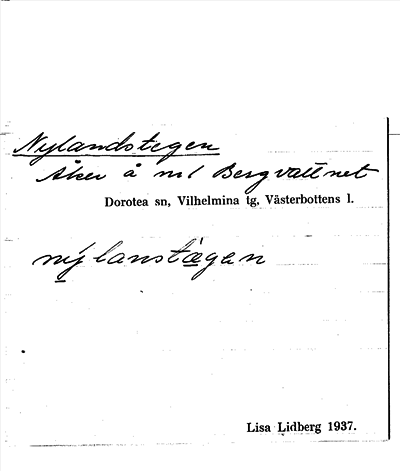 Nylandstegen
Åker å nr 1 Bergvattnet
Dorotea sn, Vilhelmina tg, Västerbottens l.
nýlanstægen
Lisa Lidberg 1937.